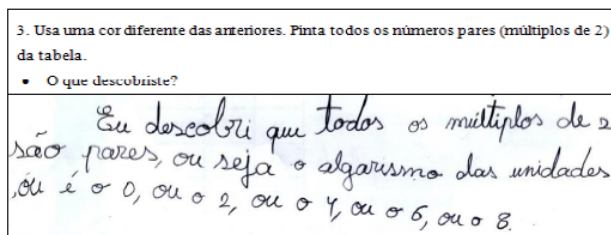 3. Usa uma cor diferente das anteriores. Pinta todos os números pares (múltiplos de 2)
da tabela.
• O que descobriste?
Eu descobri que todos os multiplos de 2
são pares, ou seja o algarismo das unidades
,ou é o 0, ou o 2, ou o 4, ou o 6, ou o 8.